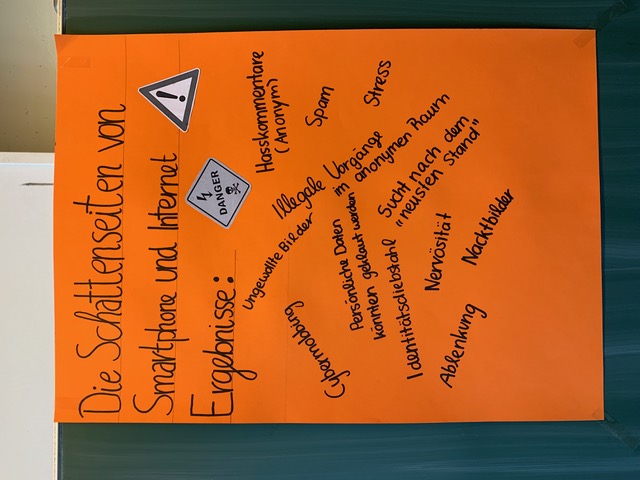 Die Schattenseiten von
Smartphone und Internet
Ergebnisse:
!
DANGER
Hasskommentare
(Anonym)
Spam
Stress
Ungewollte Bilder
Illegale Vorgänge
im anonymen Raum
Cybermobbing
Persönliche Daten
könnten geklaut werden
Sucht nach dem
"neusten Stand"
Identitätsdiebstahl
Nervösität
Ablenkung
Nacktbilder